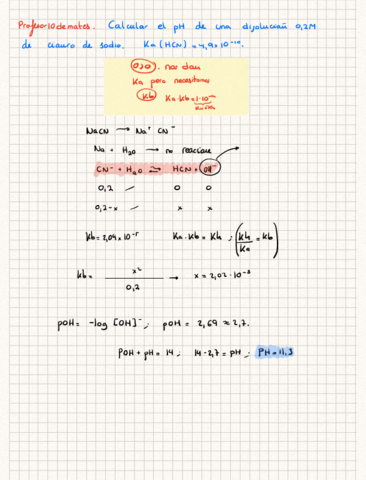 Profesor10demates. Calcular el pH de una disolución 0,2M
de cianuro de sodio. Ka (HCN) = 4,9x10⁻¹⁰
OJO. nos dan
Ka pero necesitamos
Kb Ka·Kb=1·10⁻¹⁴
NaCN → Na⁺ CN⁻
Na + H₂O → no reacciona
CN⁻ + H₂O ⇌ HCN + OH⁻
0,2 / 0 0
0,2-x / x x
Kb=2,04x10⁻⁵ Ka·Kb = Kh ; (Kh/Ka = Kb)
Kb = x²/0,2 → x = 2,02·10⁻³
pOH = -log [OH]⁻; pOH = 2,69 ≈ 2,7.
pOH + pH = 14 ; 14-2,7 = pH ; PH = 11,3